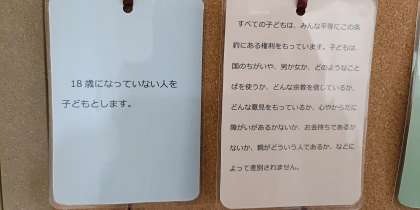 18歳になっていない人を
子どもとします。
すべての子どもは、みんな平等にこの条
約にある権利をもっています。子どもは、
国のちがいや、男か女か、どのようなこと
ばを使うか、どんな宗教を信じているか、
どんな意見をもっているか、心やからだに
障がいがあるかないか、お金持ちであるか
ないか、親がどういう人であるか、などに
よって差別されません。